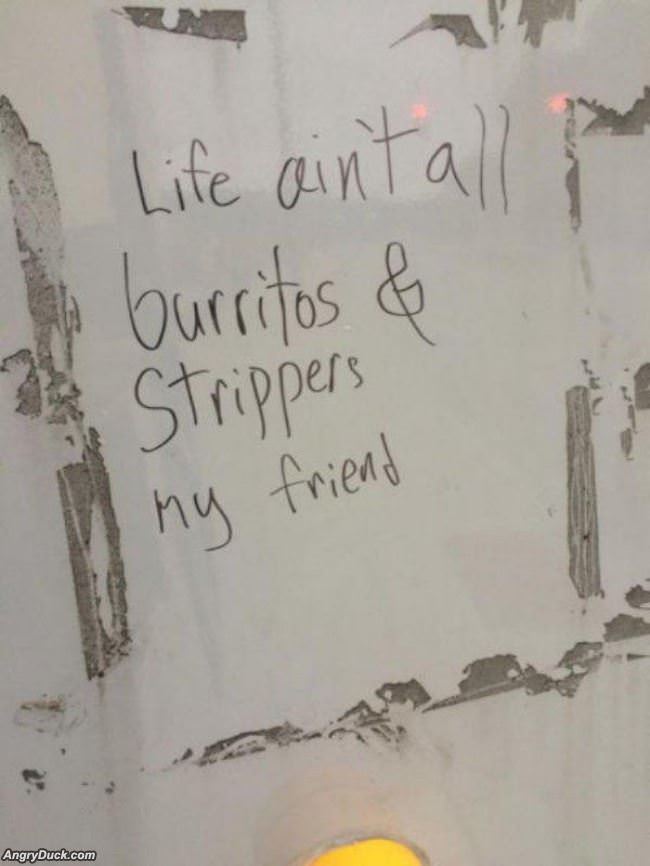 Life ain't all
burritos &
Strippers
my friend
AngryDuck.com